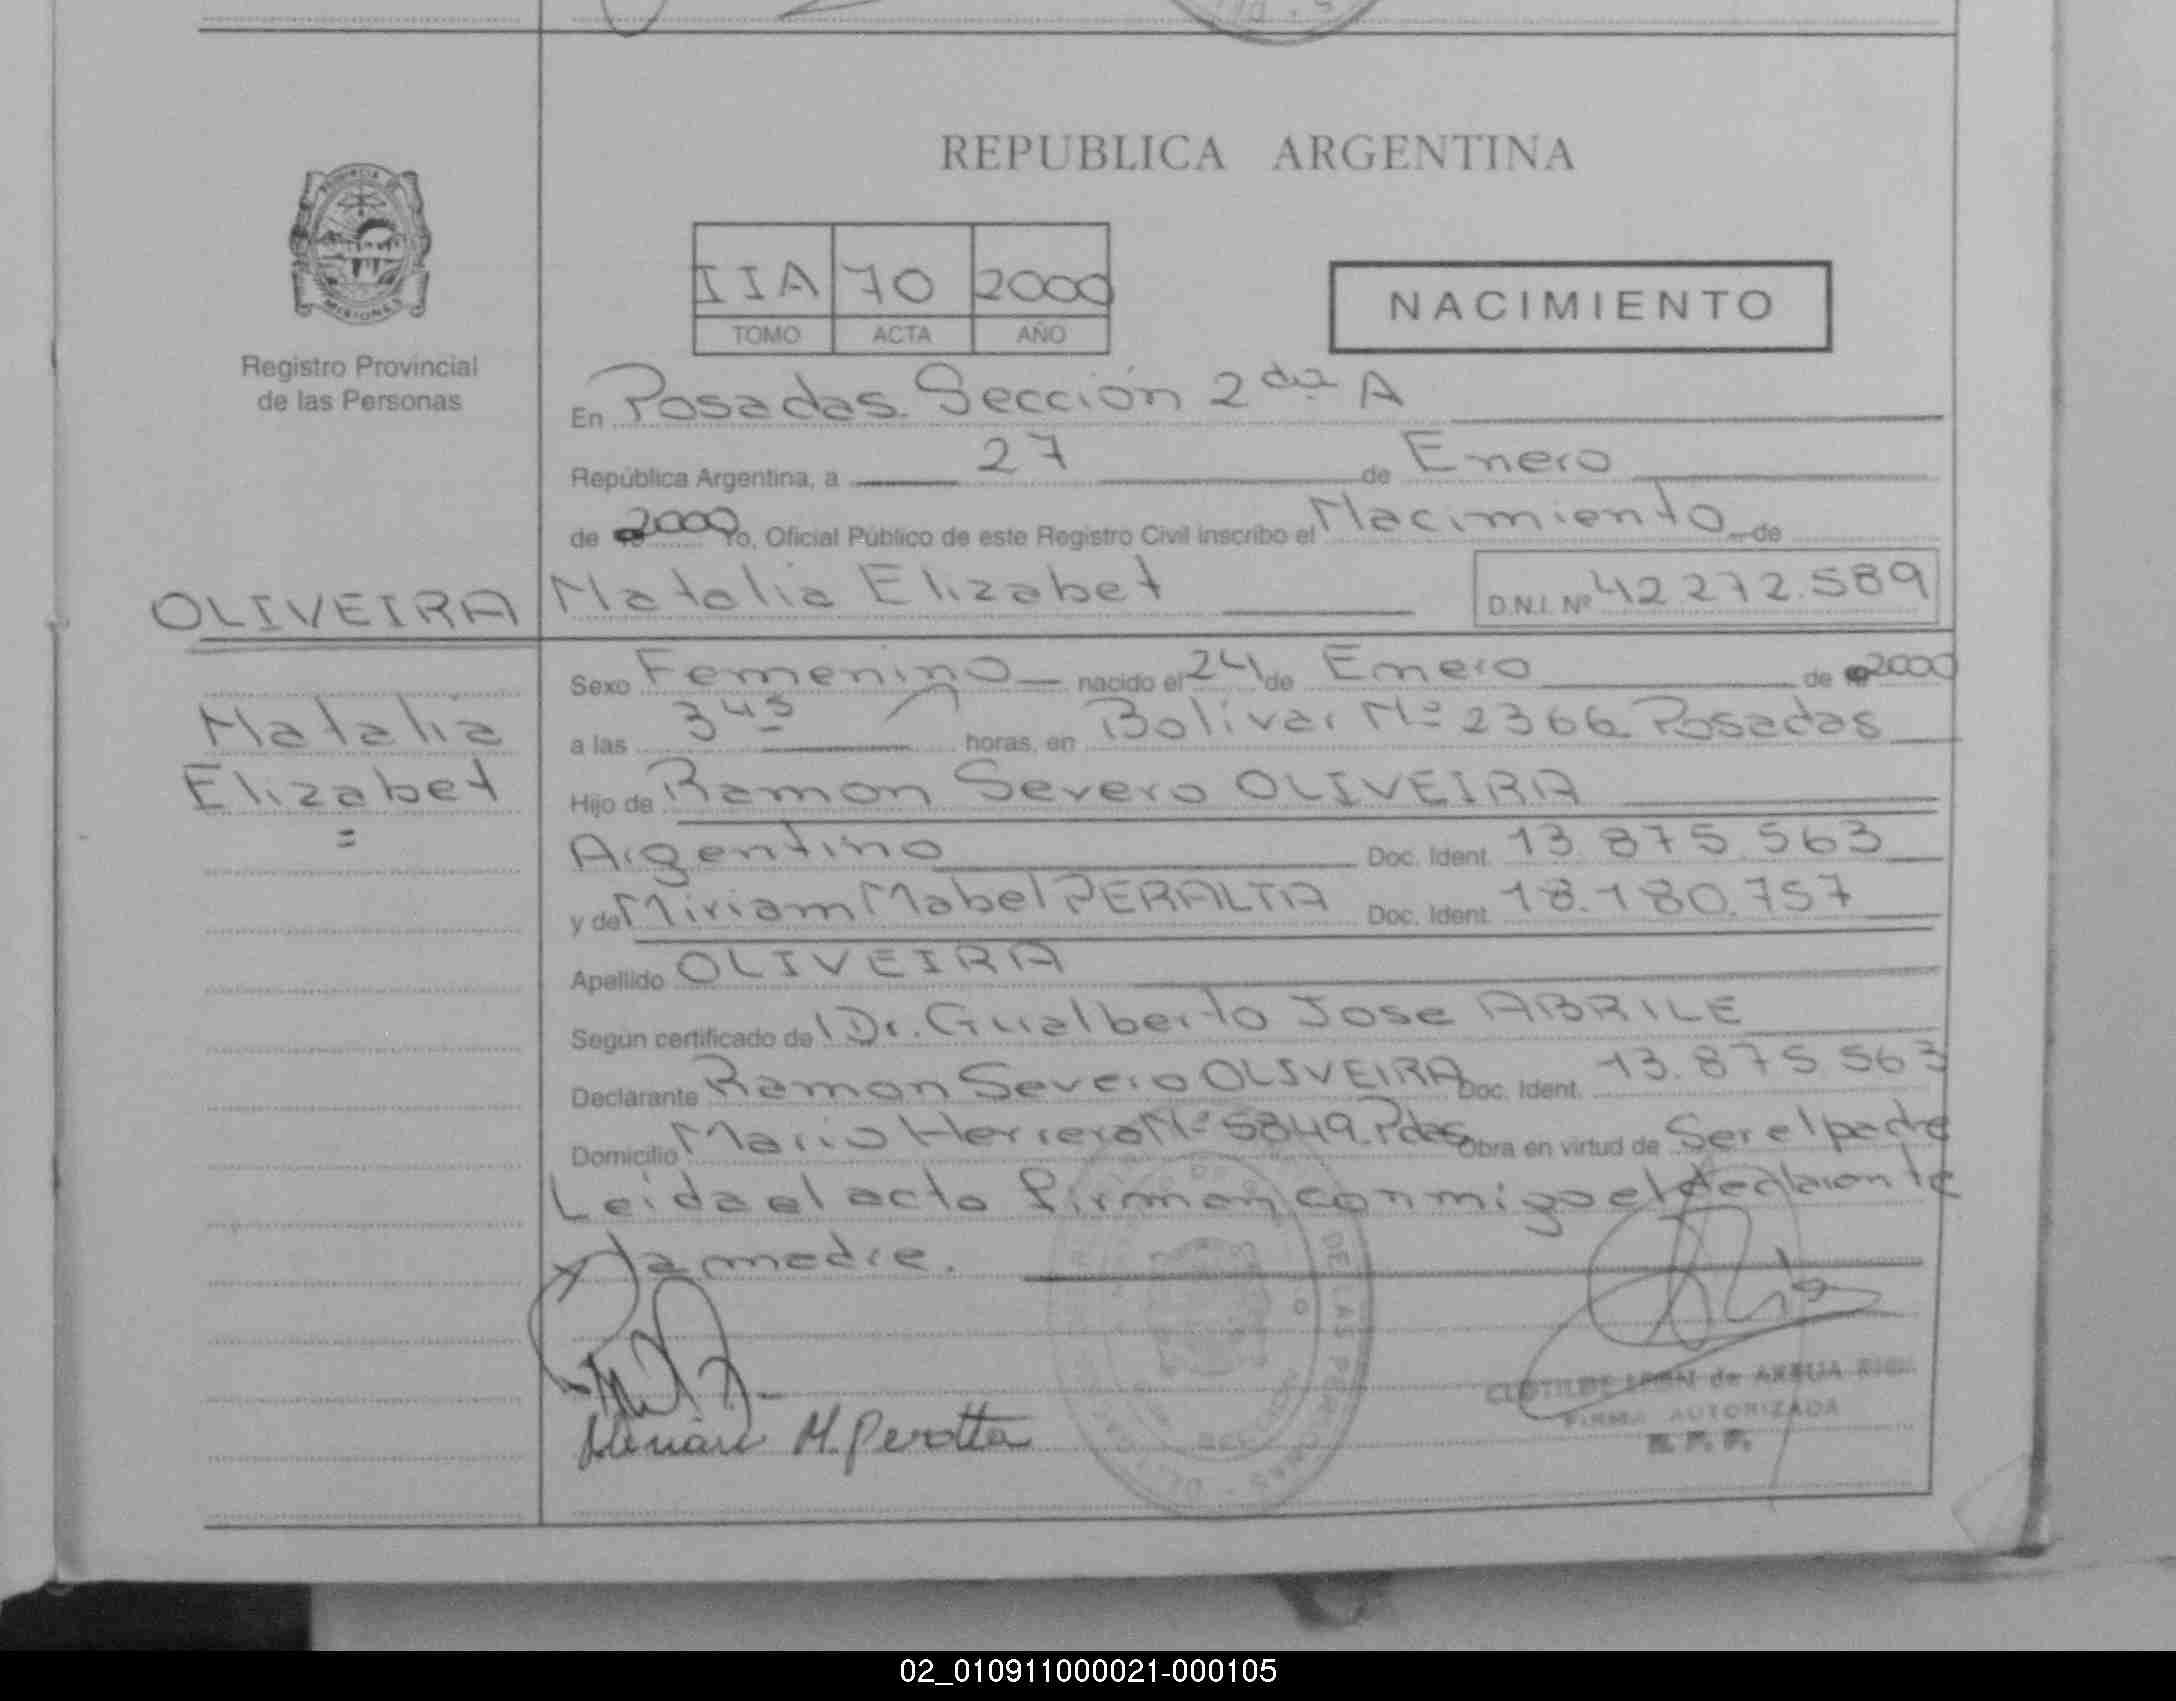 REPUBLICA ARGENTINA
PROVINCIA DE
MISIONES
Registro Provincial
de las Personas
IIA 70 2000
TOMO ACTA AÑO
NACIMIENTO
En Posadas. Sección 2da A
República Argentina, a 27 de Enero
de 2000 Yo, Oficial Público de este Registro Civil inscribo el Nacimiento de
OLIVEIRA Natalia Elizabet D.N.I. Nº 42.272.589
Sexo Femenino nacido el 24 de Enero de 2000
Natalia
a las 3 45 horas, en Bolívar Nº 2366 Posadas
Elizabet
Hijo de Ramon Severo OLIVEIRA
Argentino Doc. Ident. 13.875.563
y de Miriam Mabel PERALTA Doc. Ident. 18.180.757
Apellido OLIVEIRA
Según certificado de Dr. Gualberto Jose ABRILE
Declarante Ramon Severo OLIVEIRA Doc. Ident. 13.875.563
Domicilio Mario Herrera Nº 5849. Pdas Obra en virtud de Ser el padre
Leida el acta firman conmigo el declarante
y la madre.
DE LAS PERSONAS
Miriam M. Peralta
CLOTILDE de
FIRMA AUTORIZADA
R. P. P.
02_010911000021-000105